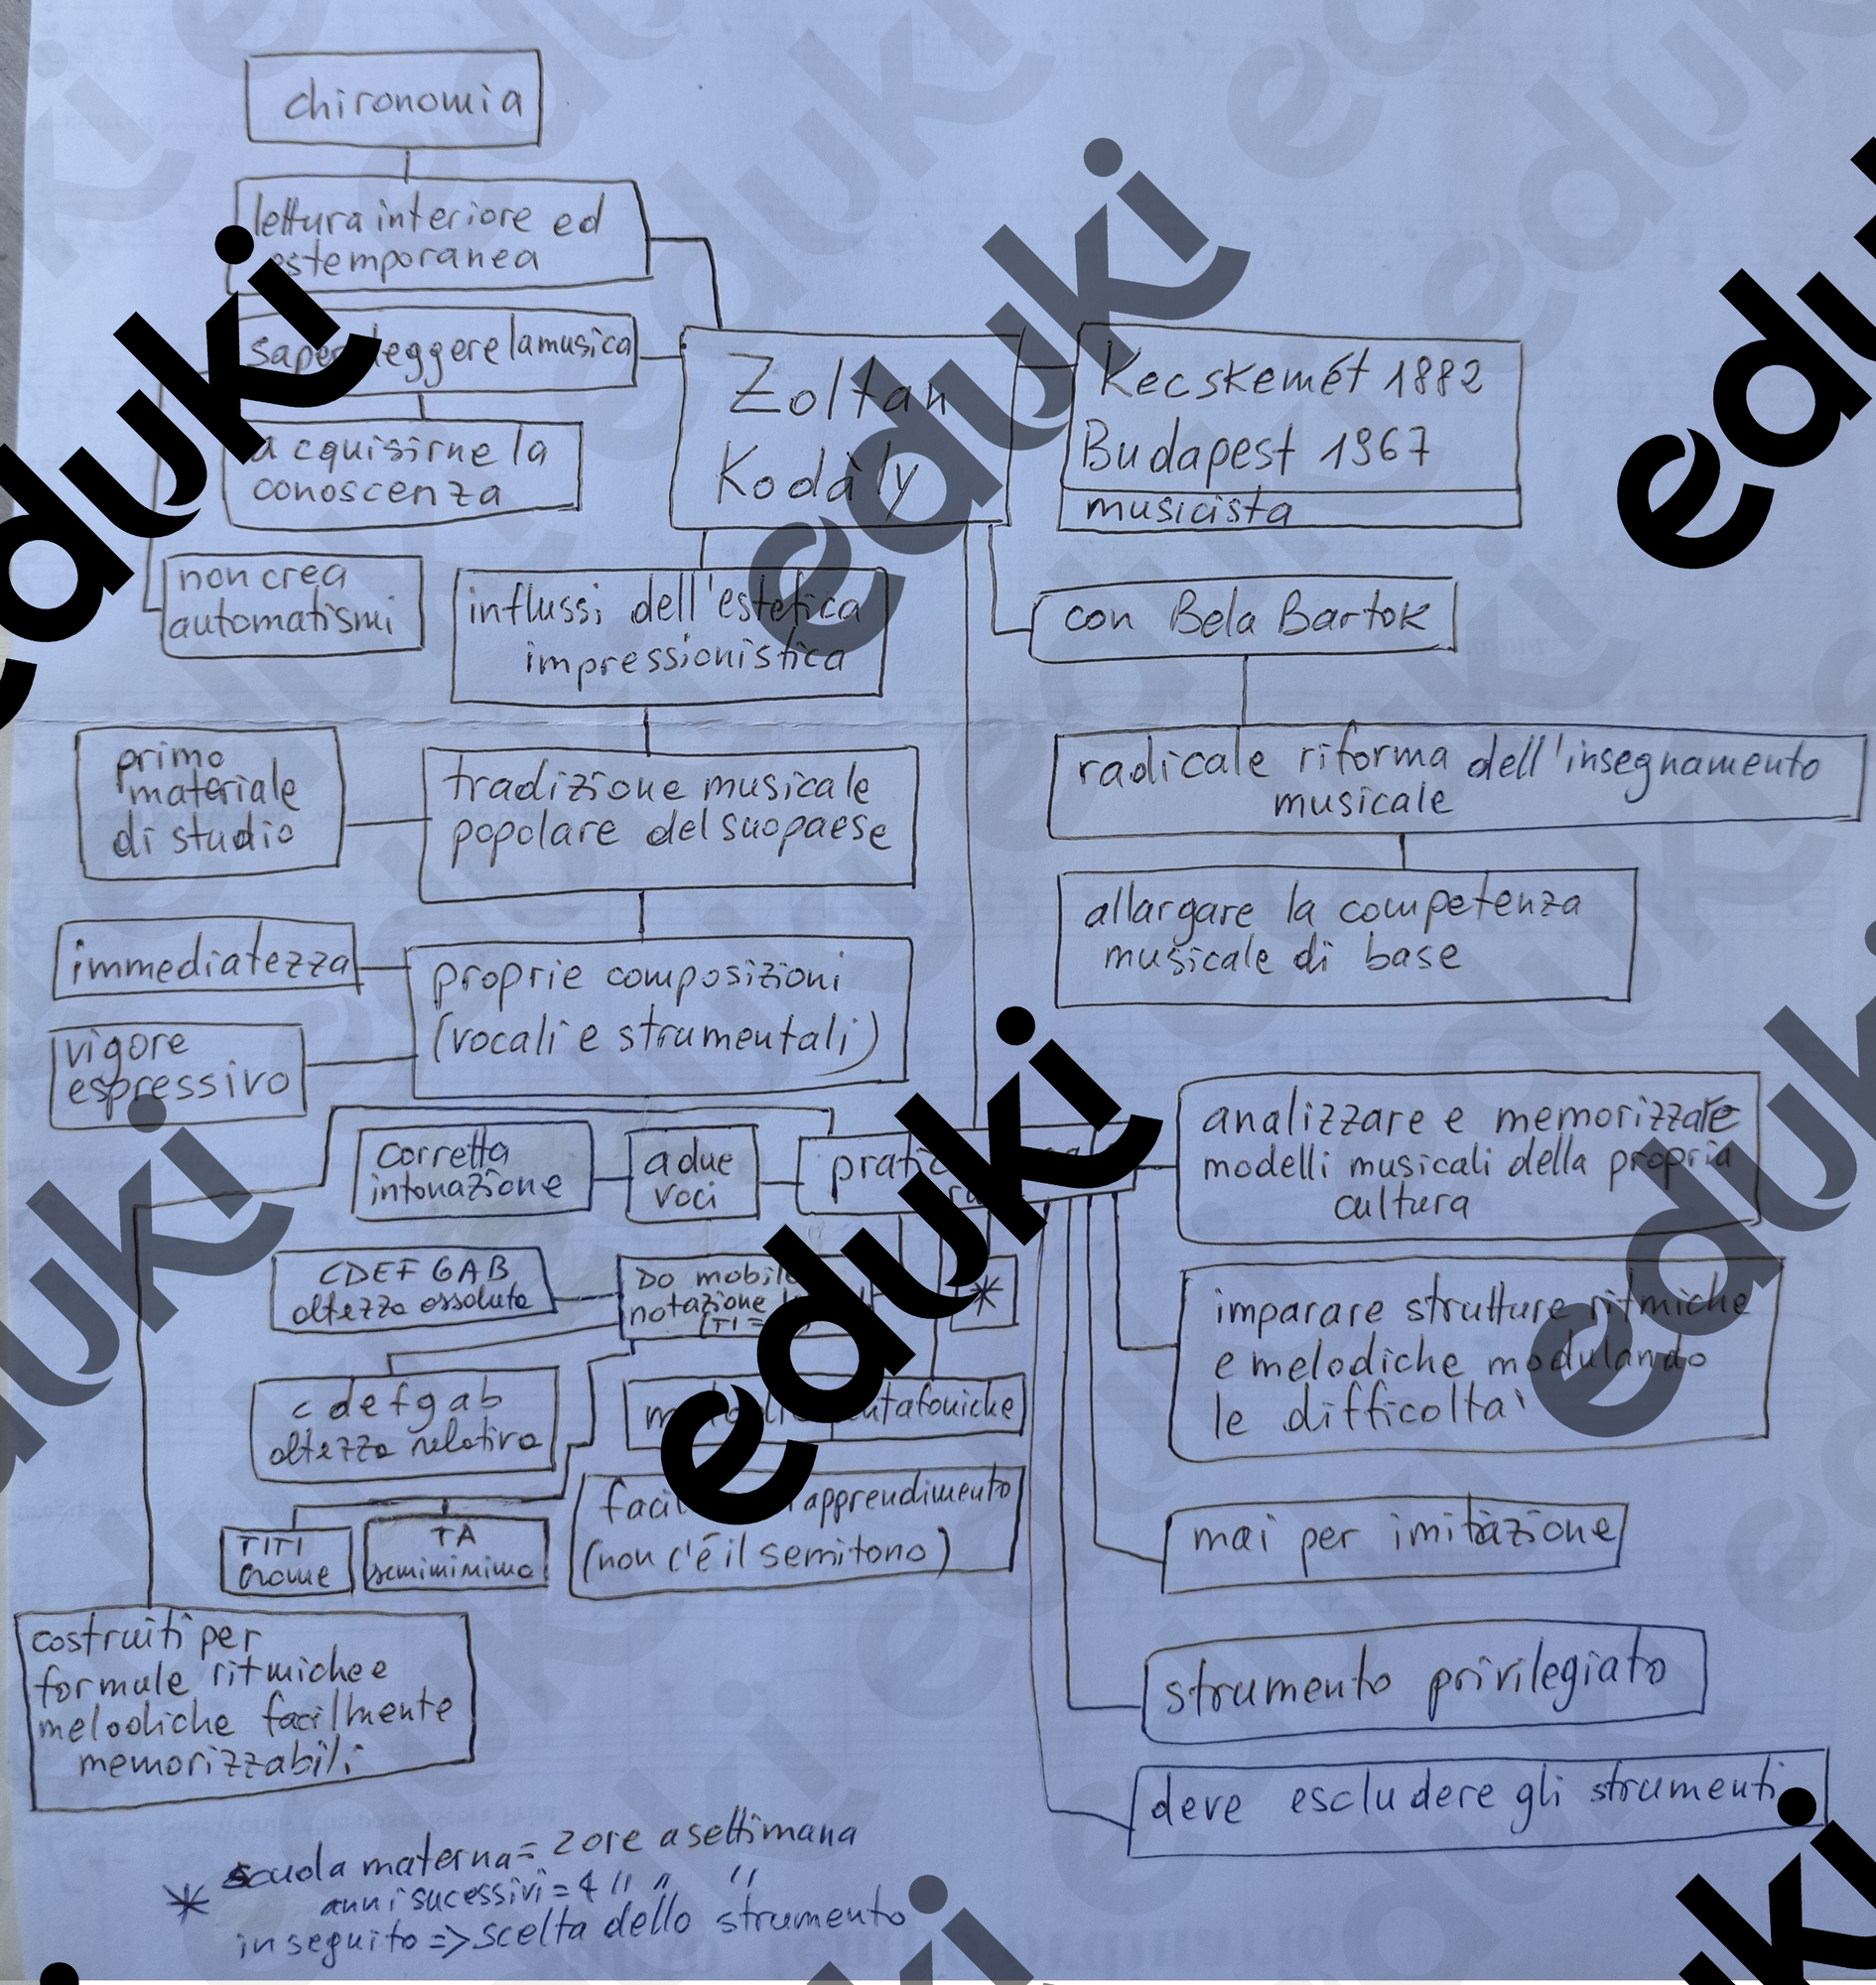 chironomia
lettura interiore ed
estemporanea
saper leggere la musica
acquisirne la
conoscenza
non crea
automatismi
Zoltan
Kodàly
Kecskemét 1882
Budapest 1967
musicista
influssi dell'estetica
impressionistica
con Bela Bartok
primo
materiale
di studio
tradizione musicale
popolare del suo paese
radicale riforma dell'insegnamento
musicale
allargare la competenza
musicale di base
immediatezza
proprie composizioni
(vocali e strumentali)
vigore
espressivo
corretta
intonazione
a due
voci
analizzare e memorizzare
modelli musicali della propria
cultura
CDEFGAB
altezza assoluta
Do mobile
notazione
(TI =
*
imparare strutture ritmiche
e melodiche modulando
le difficolta'
c defgab
altezza relativa
apprendimento
(non c'è il semitono)
mai per imitazione
TITI
crome
TA
semiminima
costruiti per
formule ritmiche e
melodiche facilmente
memorizzabili
strumento privilegiato
deve escludere gli strumenti
* scuola materna = 2 ore a settimana
anni sucessivi = 4 " " "
in seguito => scelta dello strumento
eduki
eduki
eduki
eduki
eduki
eduki
eduki